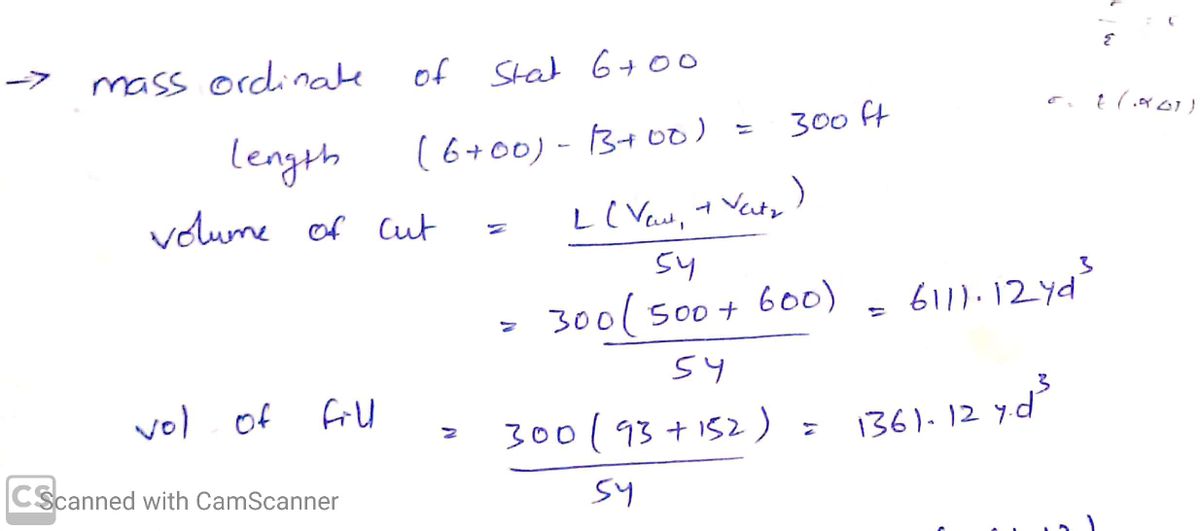 → mass ordinate of Stat 6+00
length (6+00) - (3+00) = 300 ft
volume of cut = L (Vcut₁ + Vcut₂) / 54
= 300 (500 + 600) / 54 = 6111.12 yd³
vol of fill = 300 (93 + 152) / 54 = 1361.12 yd³
CS Scanned with CamScanner